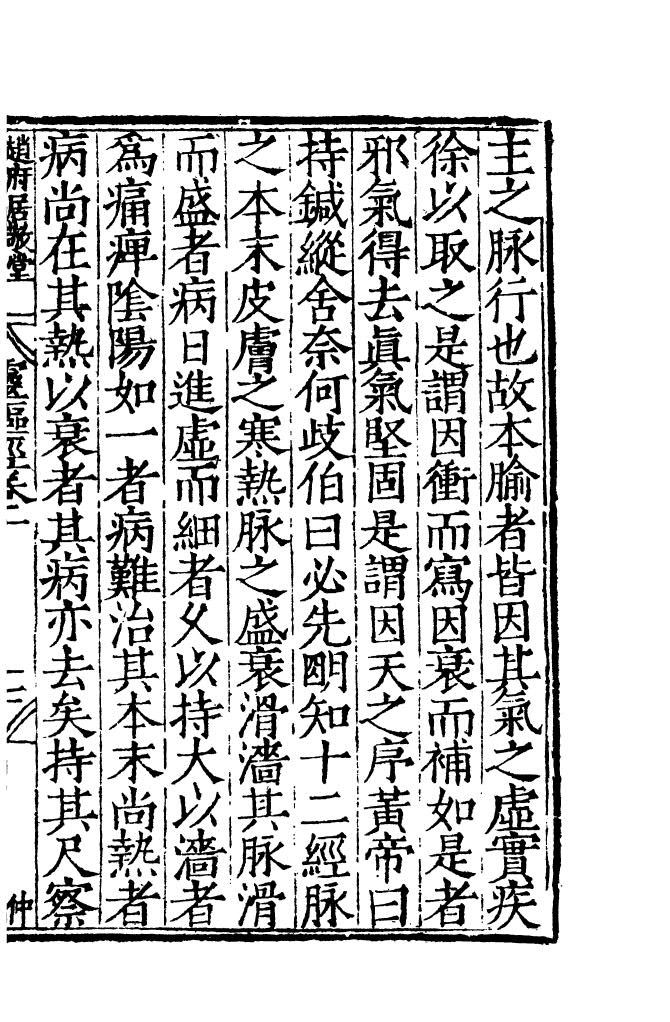 主之脉行也故本腧者皆因其氣之虛實疾
徐以取之是謂因衝而寫因衰而補如是者
邪氣得去眞氣堅固是謂因天之序黃帝曰
持鍼縱舍奈何歧伯曰必先明知十二經脉
之本末皮膚之寒熱脉之盛衰滑濇其脉滑
而盛者病日進虛而細者乆以持大以濇者
爲痛痺隂陽如一者病難治其本末尚熱者
病尚在其熱以衰者其病亦去矣持其尺察
趙府居敬堂
靈樞經卷
仲